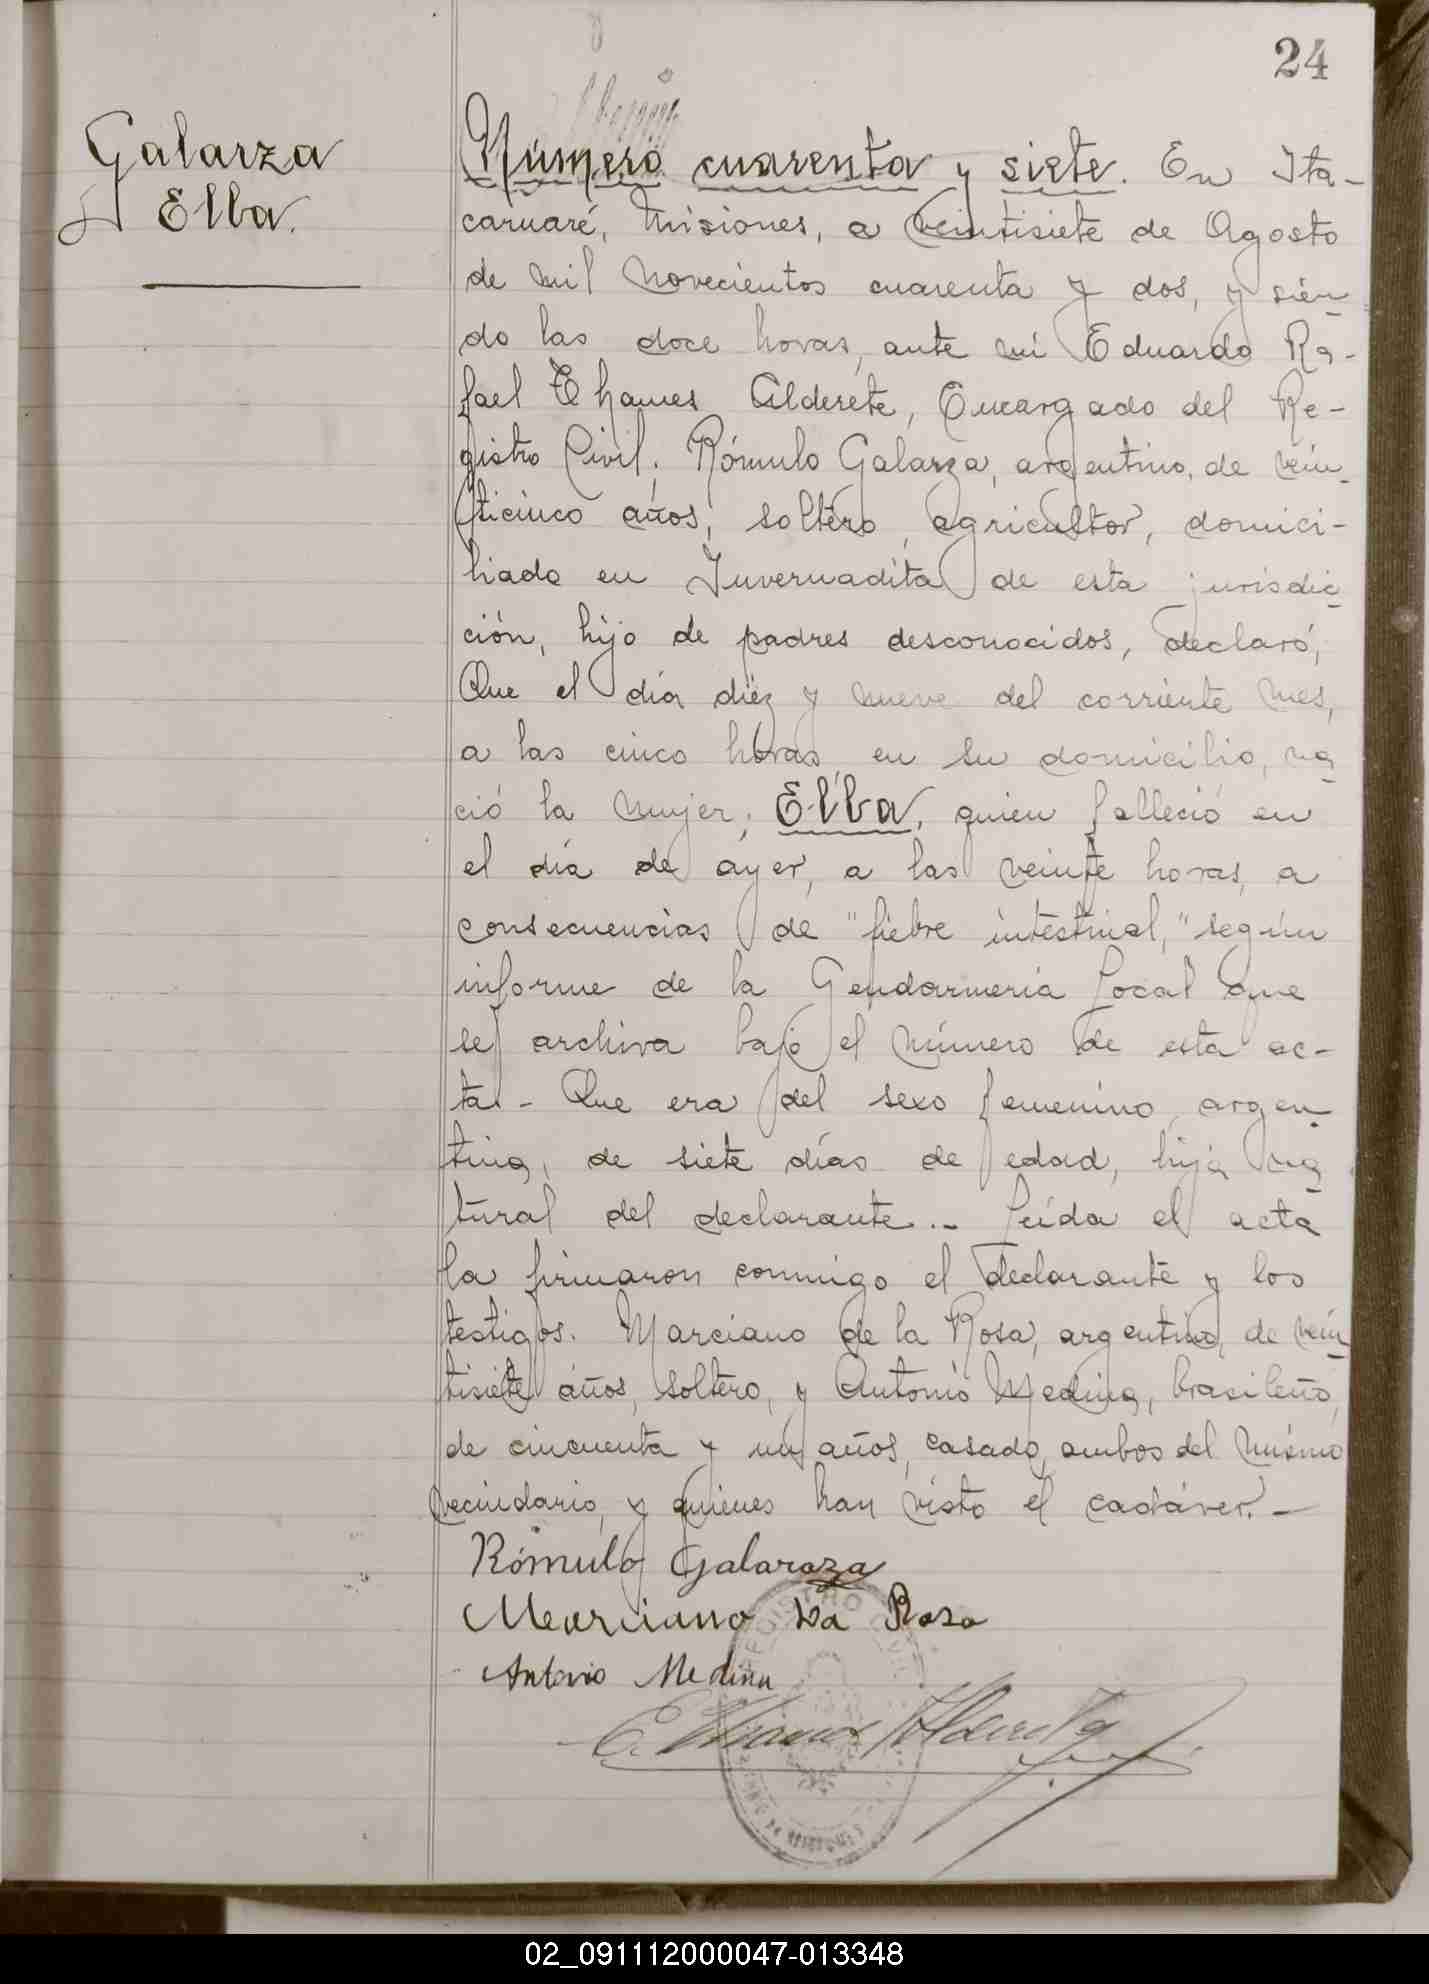 24
Galarza
Elba.
Número cuarenta y siete. En Ita-
caruaré, Misiones, a veintisiete de Agosto
de mil novecientos cuarenta y dos, y sien-
do las doce horas, ante mí Eduardo Ra-
fael Thames Alderete, Encargado del Re-
gistro Civil, Rómulo Galarza, argentino, de vein-
ticinco años, soltero, agricultor, domici-
liado en Invernadita de esta jurisdic-
ción, hijo de padres desconocidos, declaró;
Que el día diez y nueve del corriente mes,
a las cinco horas en su domicilio, na-
ció la mujer; Elba, quien falleció en
el día de ayer, a las veinte horas, a
consecuencias de "fiebre intestinal," según
informe de la Gendarmería Local que
se archiva bajo el número de esta ac-
ta.- Que era del sexo femenino, argen-
tina, de siete días de edad, hija na-
tural del declarante.- Leída el acta
la firmaron conmigo el declarante y los
testigos. Marciano de la Rosa, argentino, de vein-
tisiete años, soltero, y Antonio Medina, brasileño,
de cincuenta y un años, casado, ambos del mismo
vecindario, y quienes han visto el cadáver.-
Rómulo Galaraza
Marciano La Rosa
Antonio Medina
E. Thames Alderete
REGISTRO CIVIL
02_091112000047-013348